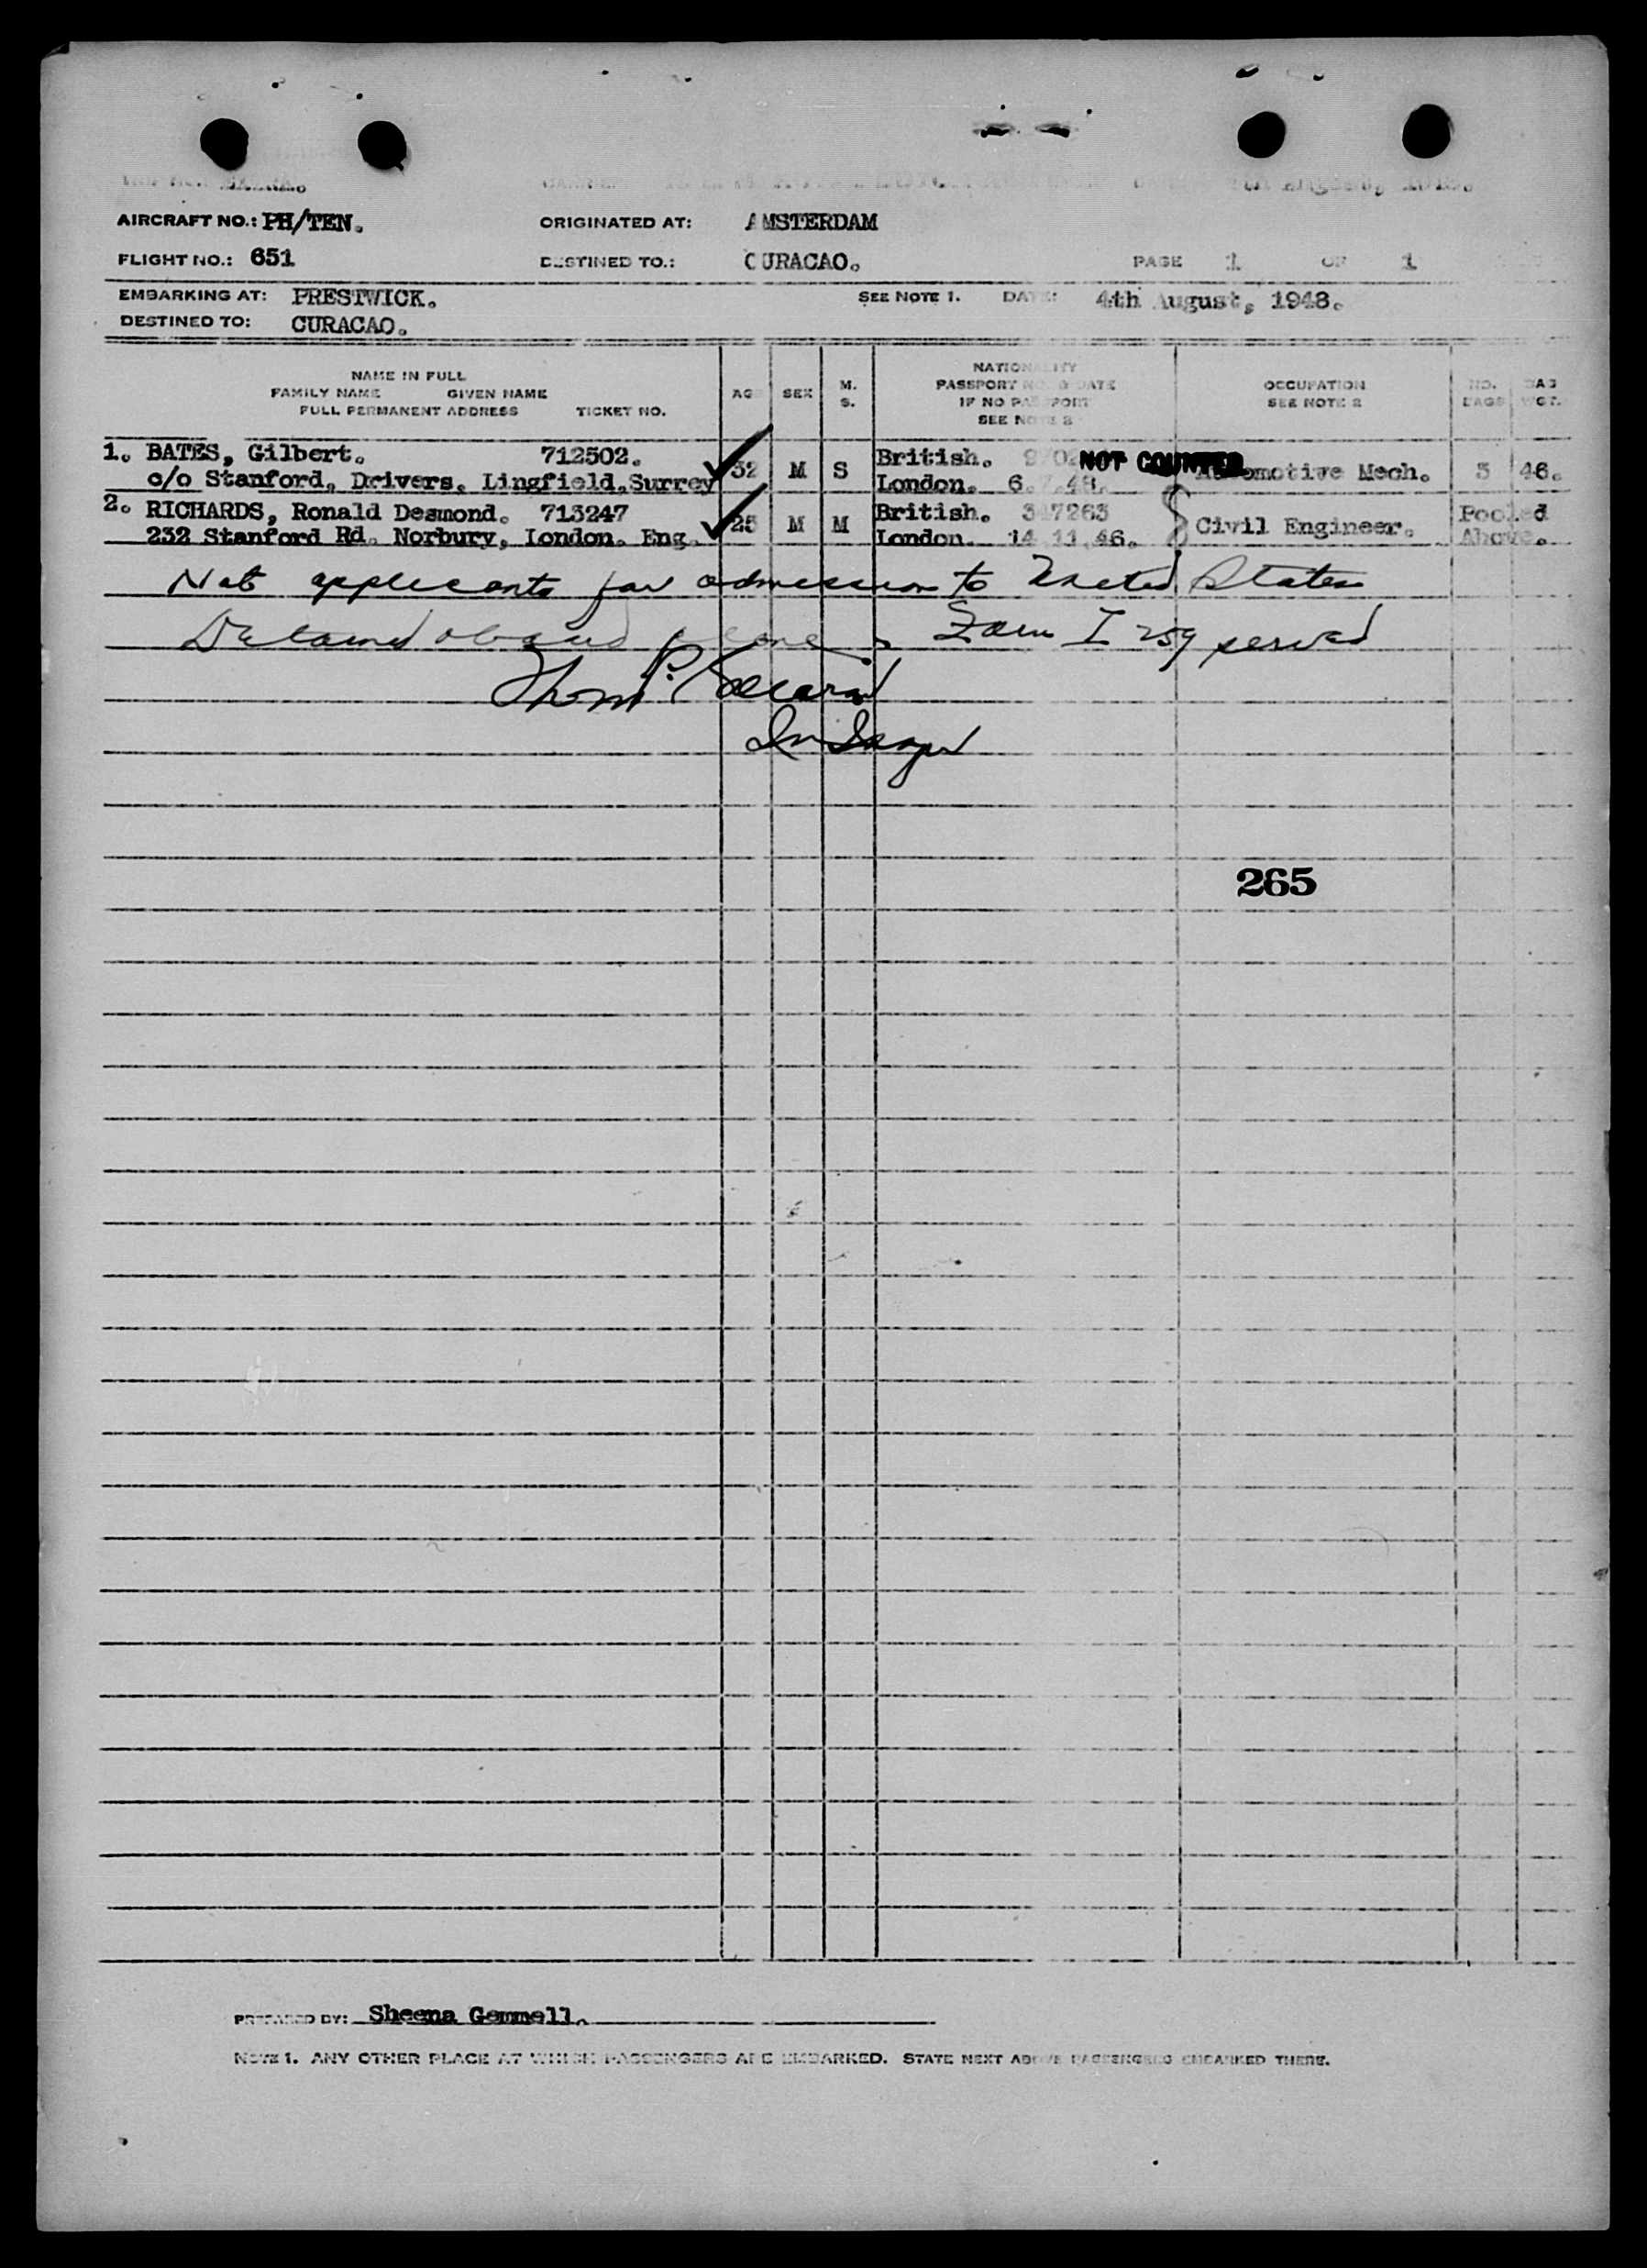 AIRCRAFT NO.: PH/TEN. ORIGINATED AT: AMSTERDAM
FLIGHT NO.: 651 DESTINED TO.: CURACAO. PAGE 1 OF 1
EMBARKING AT: PRESTWICK. SEE NOTE 1. DATE: 4th August, 1948.
DESTINED TO: CURACAO.
NAME IN FULL
FAMILY NAME GIVEN NAME
FULL PERMANENT ADDRESS TICKET NO.
AGE SEX M. S.
NATIONALITY
PASSPORT NO. & DATE
IF NO PASSPORT
SEE NOTE 3
OCCUPATION
SEE NOTE 2
NO. BAGS
BAG WGT.
1. BATES, Gilbert. 712502. 32 M S British. NOT COUNTED Automotive Mech. 3 46.
c/o Stanford, Drivers, Lingfield, Surrey London. 6.7.48.
2. RICHARDS, Ronald Desmond. 713247 25 M M British. 347263 Civil Engineer. Pooled
232 Stanford Rd. Norbury, London. Eng. London. 14.11.46. Above.
Not applicants for admission to United States
Detained aboard plane. Form I 259 served
Thom P.
In Insp
265
PREPARED BY: Sheena Gemmell.
NOTE 1. ANY OTHER PLACE AT WHICH PASSENGERS ARE EMBARKED. STATE NEXT ABOVE PASSENGERS EMBARKED THERE.